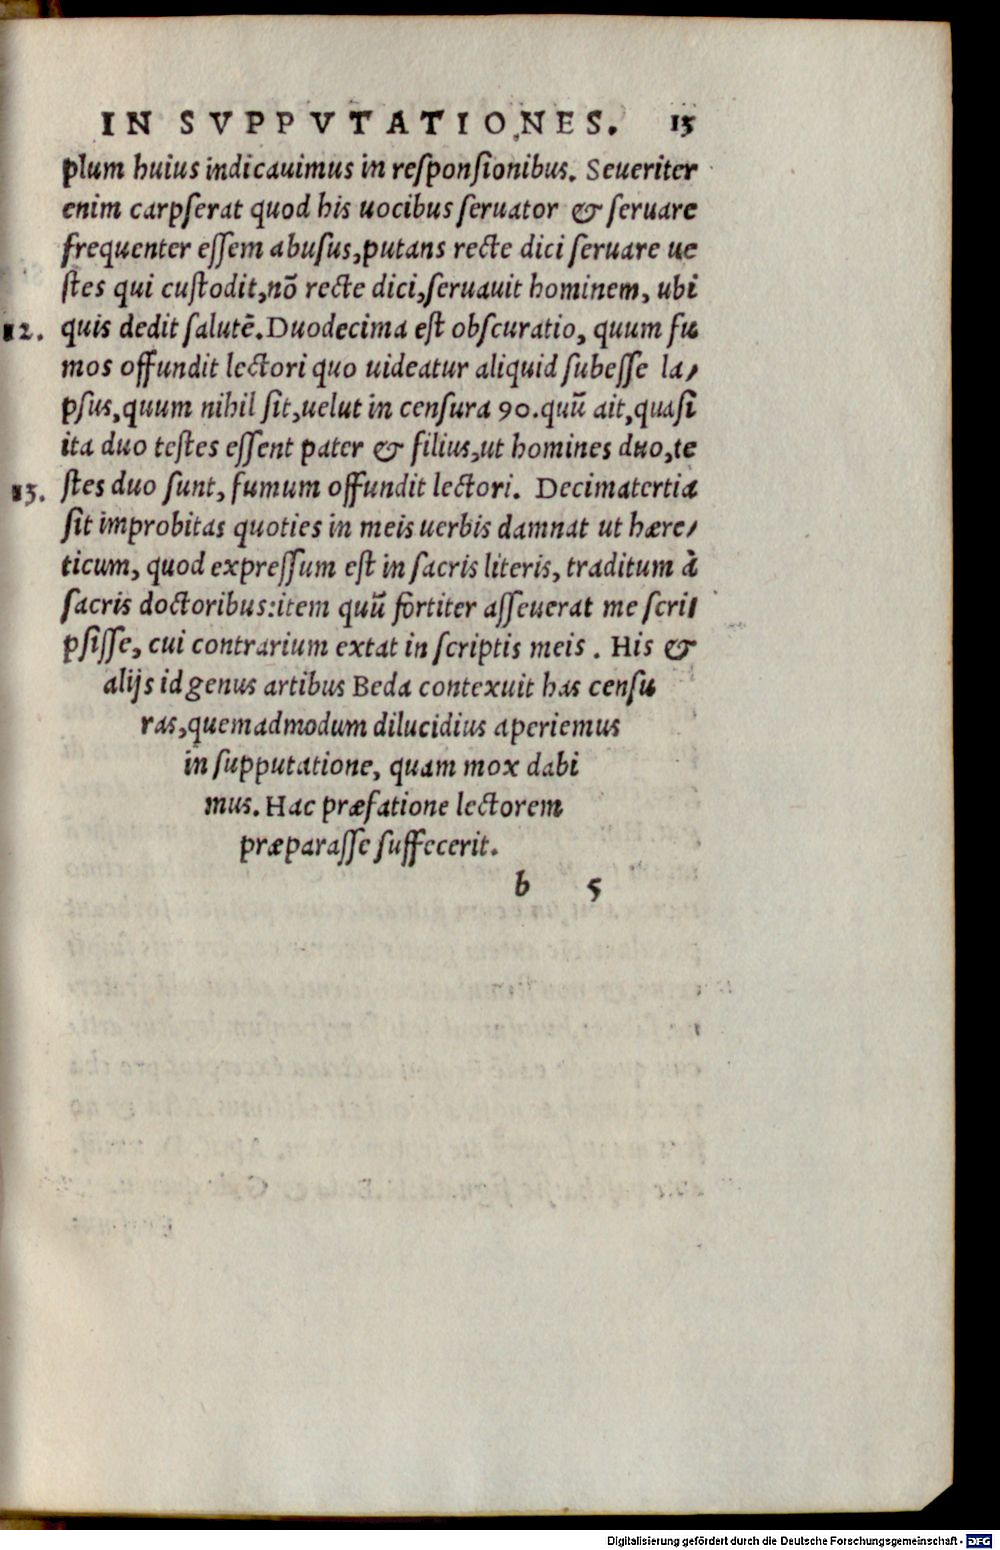 IN SVPPVTATIONES. 15
plum huius indicauimus in responsionibus. Seueriter
enim carpserat quod his uocibus seruator & seruare
frequenter essem abusus,putans recte dici seruare ue
stes qui custodit,nõ recte dici,seruauit hominem, ubi
12. quis dedit salutē.Duodecima est obscuratio, quum fu
mos offundit lectori quo uideatur aliquid subesse la/
psus,quum nihil sit,uelut in censura 90.quū ait,quasi
ita duo testes essent pater & filius,ut homines duo,te
13. stes duo sunt, fumum offundit lectori. Decimatertia
sit improbitas quoties in meis uerbis damnat ut hære/
ticum, quod expressum est in sacris literis, traditum à
sacris doctoribus:item quū fortiter asseuerat me scri/
psisse, cui contrarium extat in scriptis meis . His &
alijs id genus artibus Beda contexuit has censu
ras,quemadmodum dilucidius aperiemus
in supputatione, quam mox dabi
mus. Hac præfatione lectorem
præparasse suffecerit.
b 5
Digitalisierung gefördert durch die Deutsche Forschungsgemeinschaft - DFG